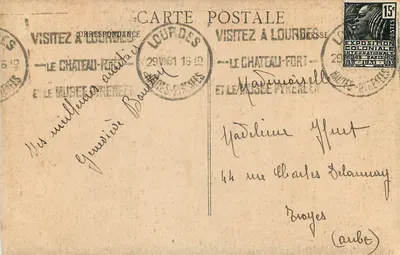 CARTE POSTALE
CORRESPONDANCE
VISITEZ A LOURDES
-LE CHATEAU-FORT-
ET LE MUSÉE PYRENEEN
LOURDES
HTES-PYRÉNÉES
VISITEZ A LOURDES
-LE CHATEAU-FORT-
ET LE MUSÉE PYRENEEN
LOURDES
HAUTES-PYRENEES
15c
EXPOSITION
COLONIALE
INTERNATIONALE
Mes meilleures amitiés
Geneviève
Mademoiselle
Madeleine
44 rue Charles Delaunay
Troyes
(Aube)